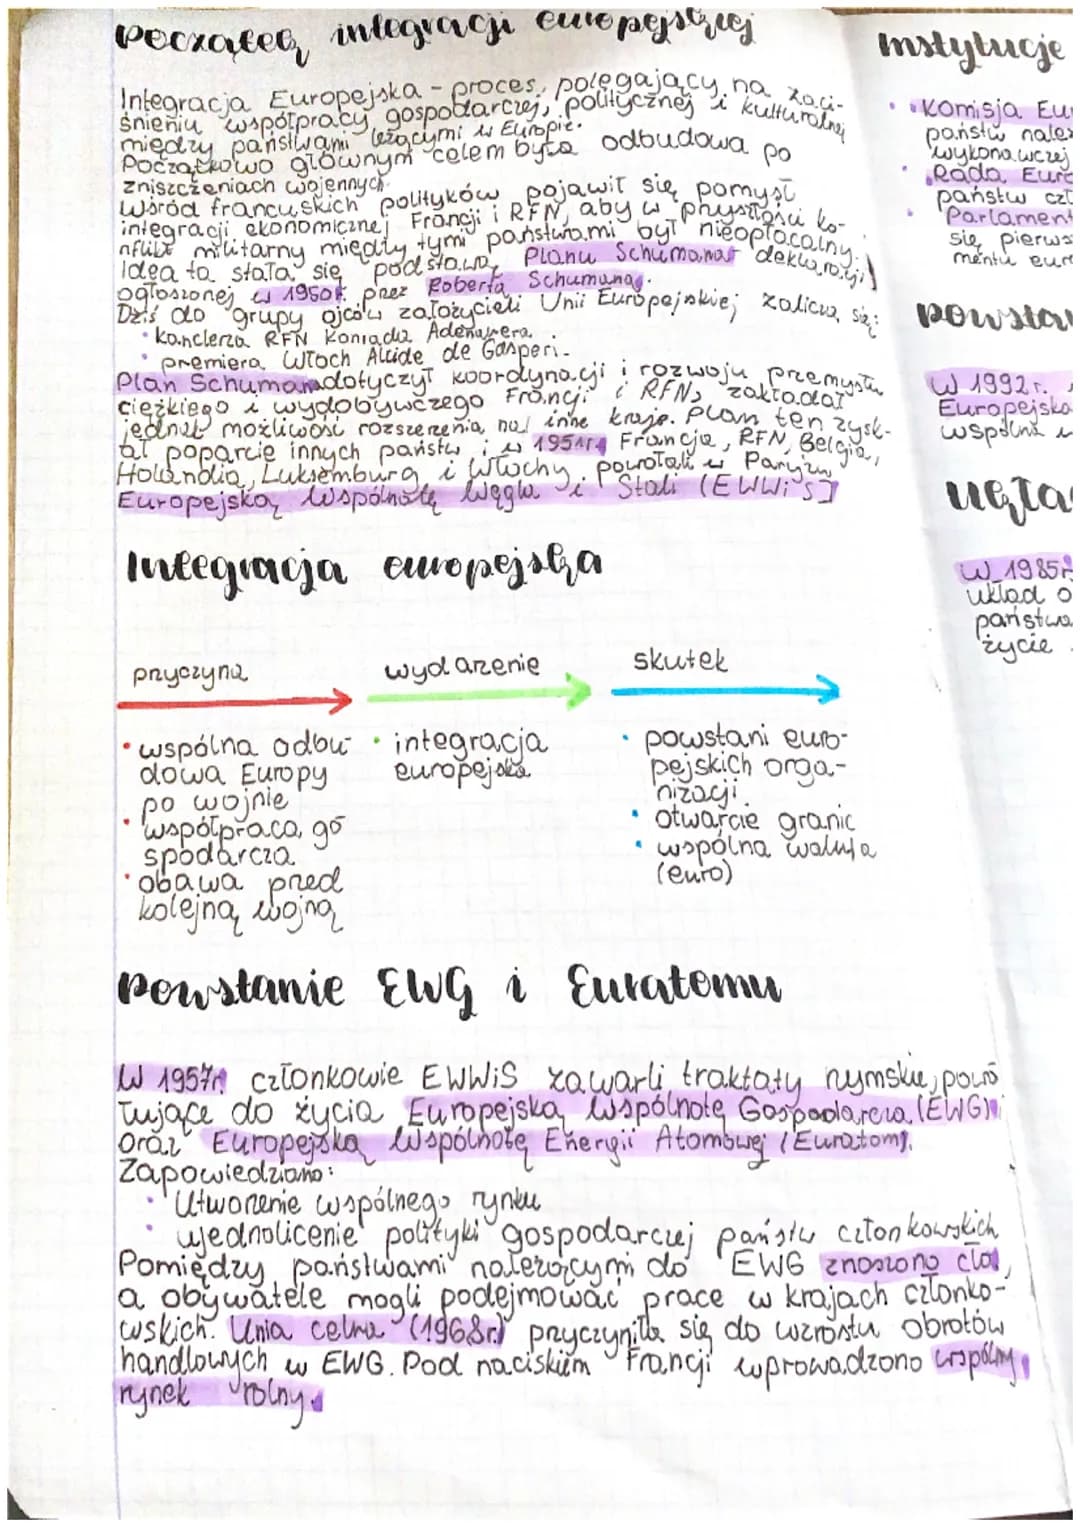 Początek integracji europejskiej
Integracja Europejska - proces, polegający na zaci-
śnieniu współpracy gospodarczej, politycznej i kulturalnej
między państwami leżącymi w Europie.
Początkowo głównym celem była odbudowa po
zniszczeniach wojennych.
Wśród francuskich polityków pojawił się pomysł
integracji ekonomicznej Francji i RFN, aby w przyszłości ko-
nflikt militarny między tymi państwami był nieopłacalny.
Idea ta stała się podstawą Planu Schumana (deklaracji)
ogłoszonej w 1950r. przez Roberta Schumana.
Dziś do grupy ojców założycieli Unii Europejskiej zalicza się:
• kanclerza RFN Konrada Adenauera.
• premiera Włoch Alcide de Gasperi.
Plan Schumana dotyczył koordynacji i rozwoju przemysłu
ciężkiego i wydobywczego Francji i RFN, zakładał
jednak możliwość rozszerzenia na inne kraje. Plan ten zysk-
ał poparcie innych państw i w 1951r. Francja, RFN, Belgia,
Holandia, Luksemburg i Włochy powołali w Paryżu
Europejską Wspólnotę Węgla i Stali (EWWiS)
Integracja europejska
przyczyna
wydarzenie
skutek
• wspólna odbu-
dowa Europy
po wojnie
• współpraca go
spodarcza
• obawa przed
kolejną wojną
• integracja
europejska
• powstani euro-
pejskich orga-
nizacji.
• otwarcie granic
• wspólna waluta
(euro)
Powstanie EWG i Euratomu
W 1957r. członkowie EWWiS zawarli traktaty rzymskie, powo
łujące do życia Europejską Wspólnotę Gospodarczą (EWG)
oraz Europejską Wspólnotę Energii Atomowej (Euratom).
Zapowiedziano:
• Utworzenie wspólnego rynku
• ujednolicenie polityki gospodarczej państw członkowskich
Pomiędzy państwami należącymi do EWG znoszono cła,
a obywatele mogli podejmować prace w krajach członko-
wskich. Unia celna (1968r.) przyczyniła się do wzrostu obrotów
handlowych w EWG. Pod naciskiem Francji wprowadzono wspólny
rynek rolny.
Instytucje
• Komisja Eu
państw należ
wykonawczej
• Rada Euro
państw czł
• Parlament
się pierwsz
mentu euro
Powstan
W 1992r.
Europejska
wspólna
Ukła
W 1985r.
układ o
państwa
życie